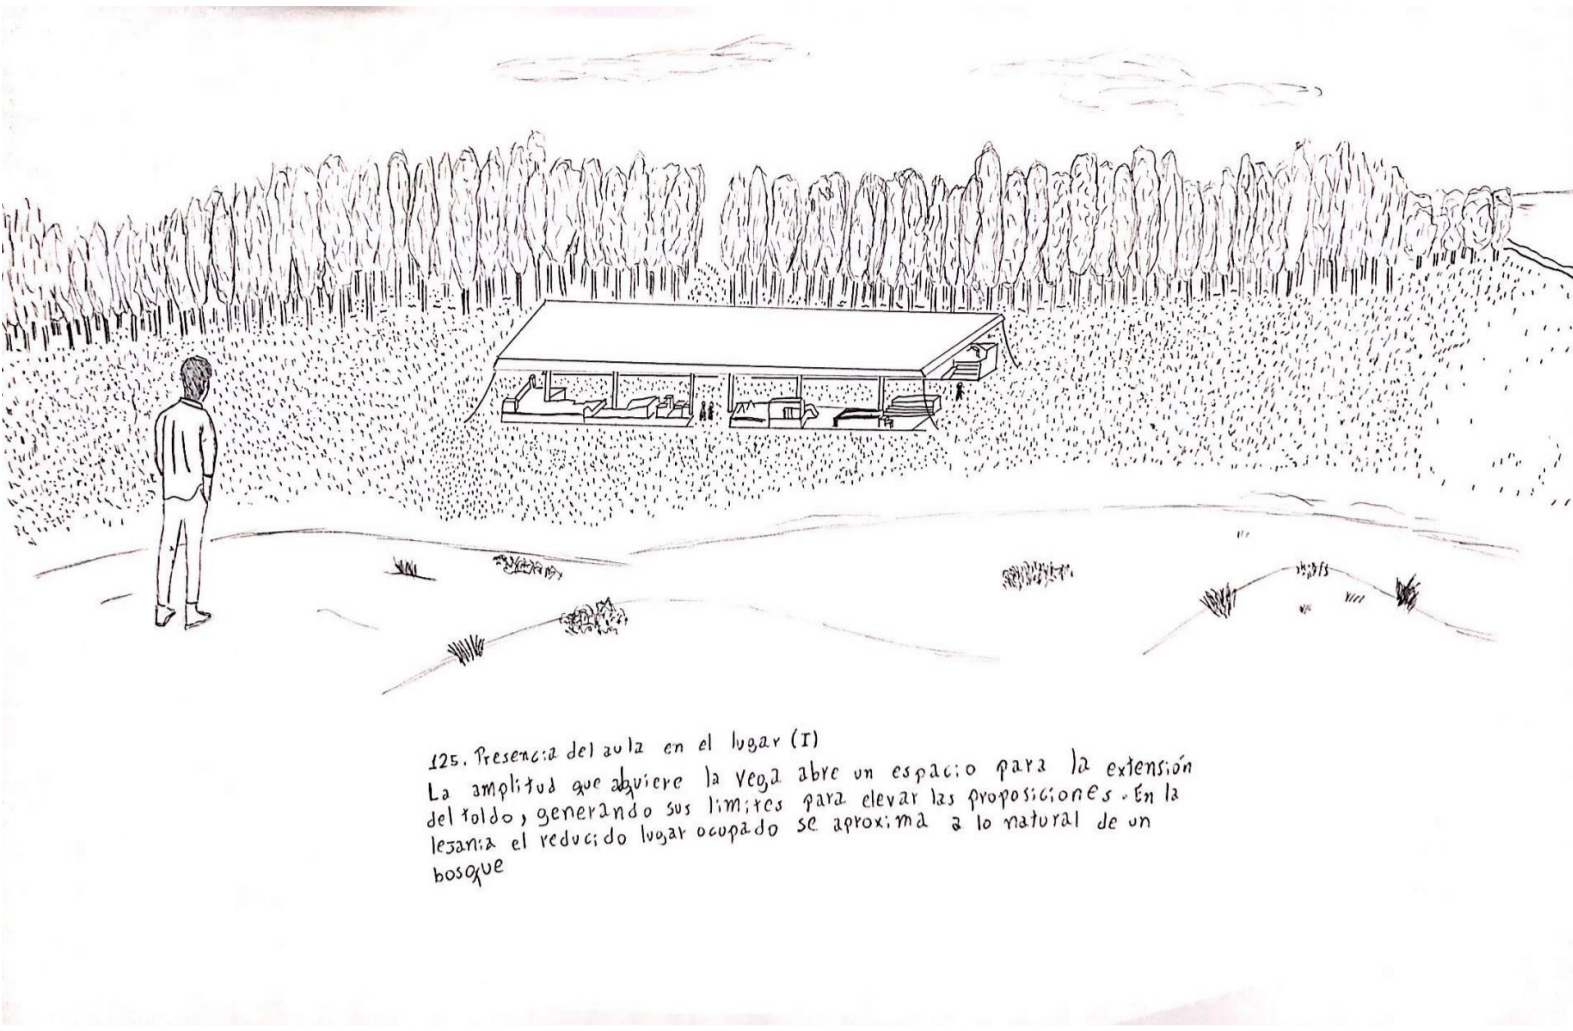 125. Presencia del aula en el lugar (I)
La amplitud que abquiere la vega abre un espacio para la extensión
del toldo, generando sus limites para elevar las proposiciones. En la
lejania el reducido lugar ocupado se aproxima a lo natural de un
bosque